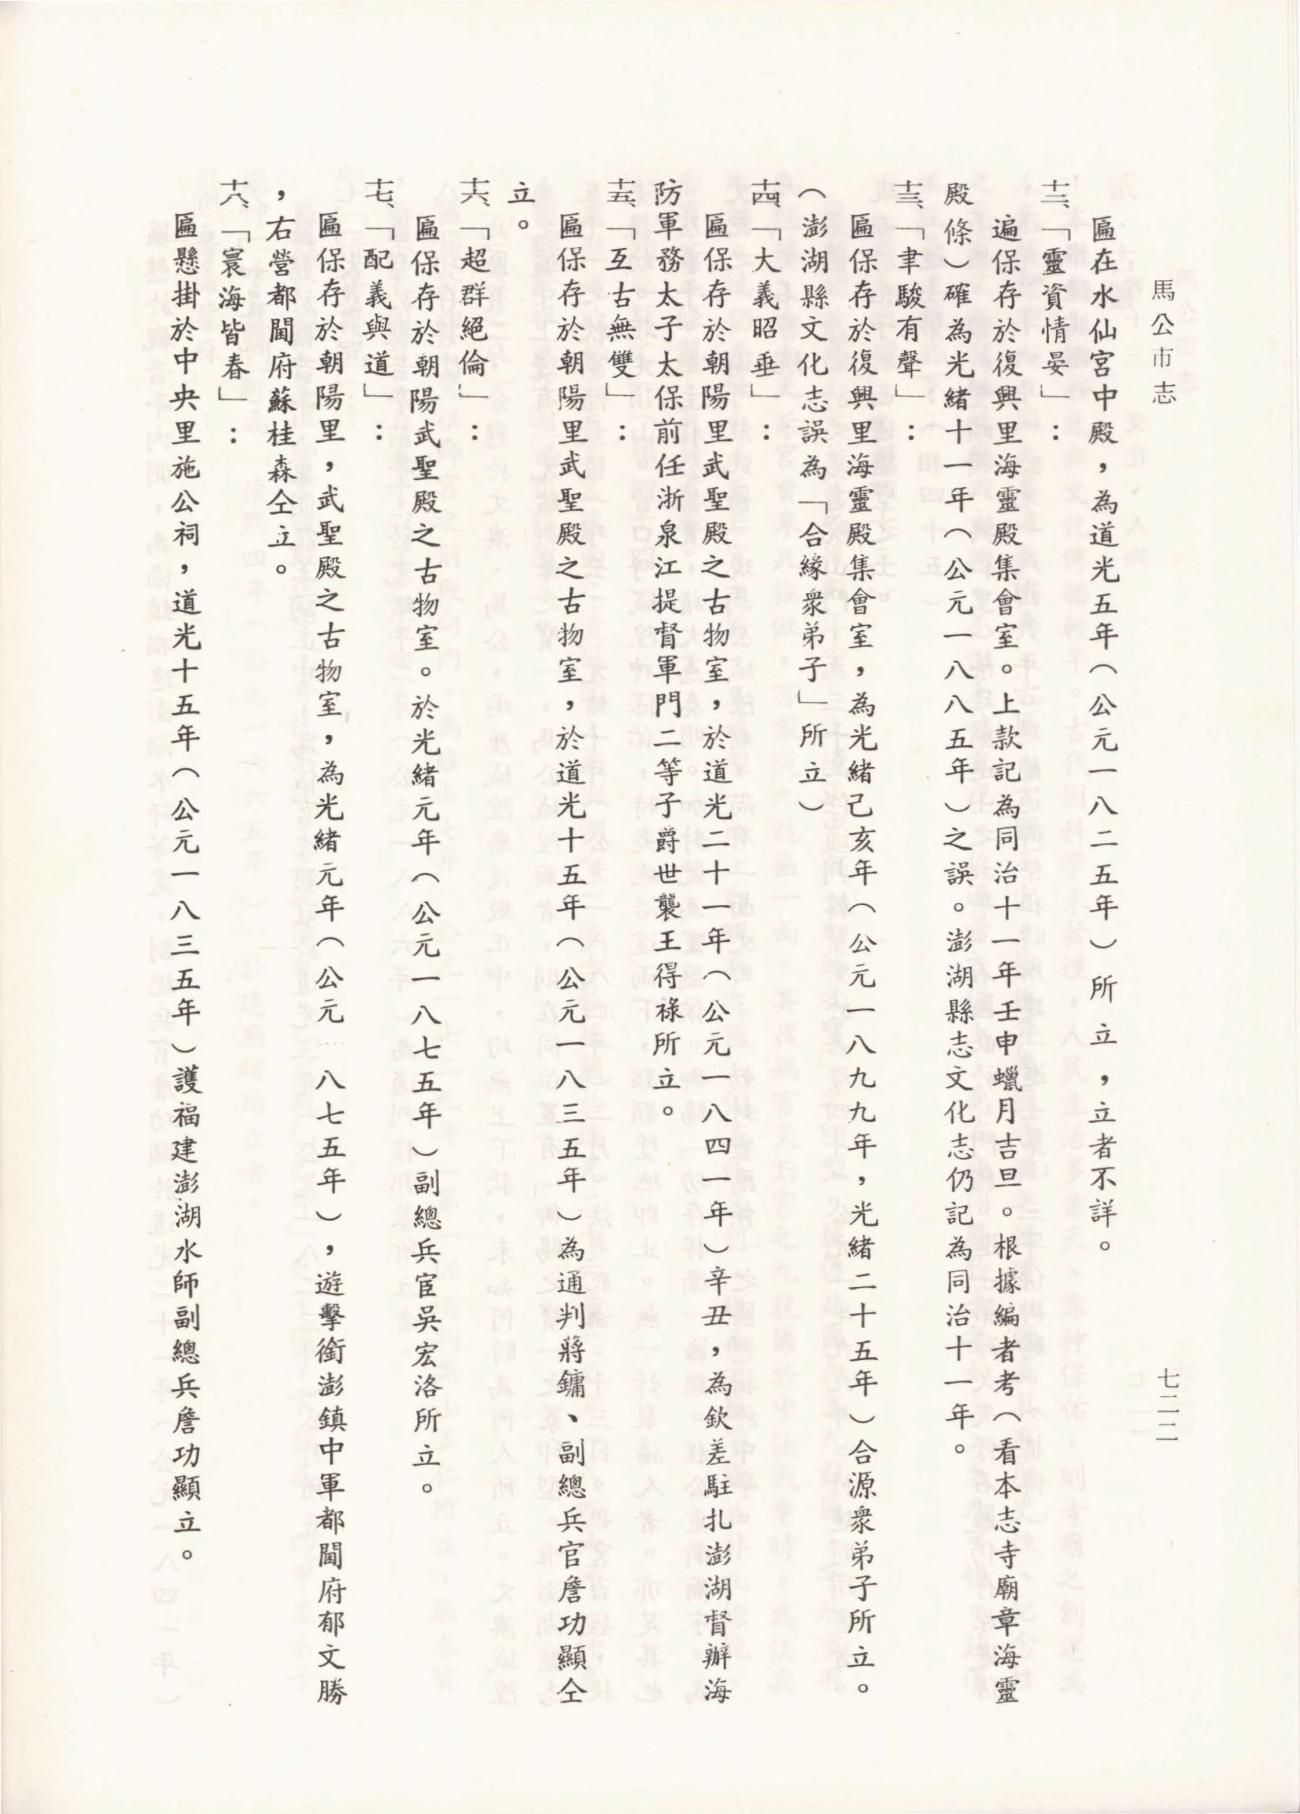 馬公市志
七二二
匾在水仙宮中殿，為道光五年（公元一八二五年）所立，立者不詳。
十二、「靈資情晏」：
遍保存於復興里海靈殿集會室。上款記為同治十一年壬申蠟月吉旦。根據編者考（看本志寺廟章海靈
殿條）確為光緒十一年（公元一八八五年）之誤。澎湖縣志文化志仍記為同治十一年。
十三、「聿駿有聲」：
匾保存於復興里海靈殿集會室，為光緒己亥年（公元一八九九年，光緒二十五年）合源衆弟子所立。
（澎湖縣文化志誤為「合緣衆弟子」所立）
十四、「大義昭垂」：
匾保存於朝陽里武聖殿之古物室，於道光二十一年（公元一八四一年）辛丑，為欽差駐扎澎湖督辦海
防軍務太子太保前任浙泉江提督軍門二等子爵世襲王得祿所立。
十五、「亙古無雙」：
匾保存於朝陽里武聖殿之古物室，於道光十五年（公元一八三五年）為通判蔣鏞、副總兵官詹功顯仝
立。
十六、「超群絕倫」：
匾保存於朝陽武聖殿之古物室。於光緒元年（公元一八七五年）副總兵官吳宏洛所立。
十七、「配義與道」：
匾保存於朝陽里，武聖殿之古物室，為光緒元年（公元一八七五年），遊擊銜澎鎮中軍都閫府郁文勝
，右營都閫府蘇桂森仝立。
十八、「寰海皆春」：
匾懸掛於中央里施公祠，道光十五年（公元一八三五年）護福建澎湖水師副總兵詹功顯立。